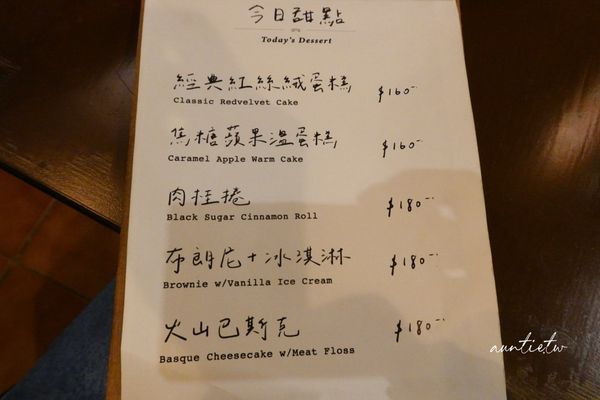 今日甜點
Today's Dessert
經典紅絲絨蛋糕 $160-
Classic Redvelvet Cake
焦糖蘋果溫蛋糕 $160-
Caramel Apple Warm Cake
肉桂捲 $180-
Black Sugar Cinnamon Roll
布朗尼+冰淇淋 $180-
Brownie w/Vanilla Ice Cream
火山巴斯克 $180-
Basque Cheesecake w/Meat Floss
auntietw